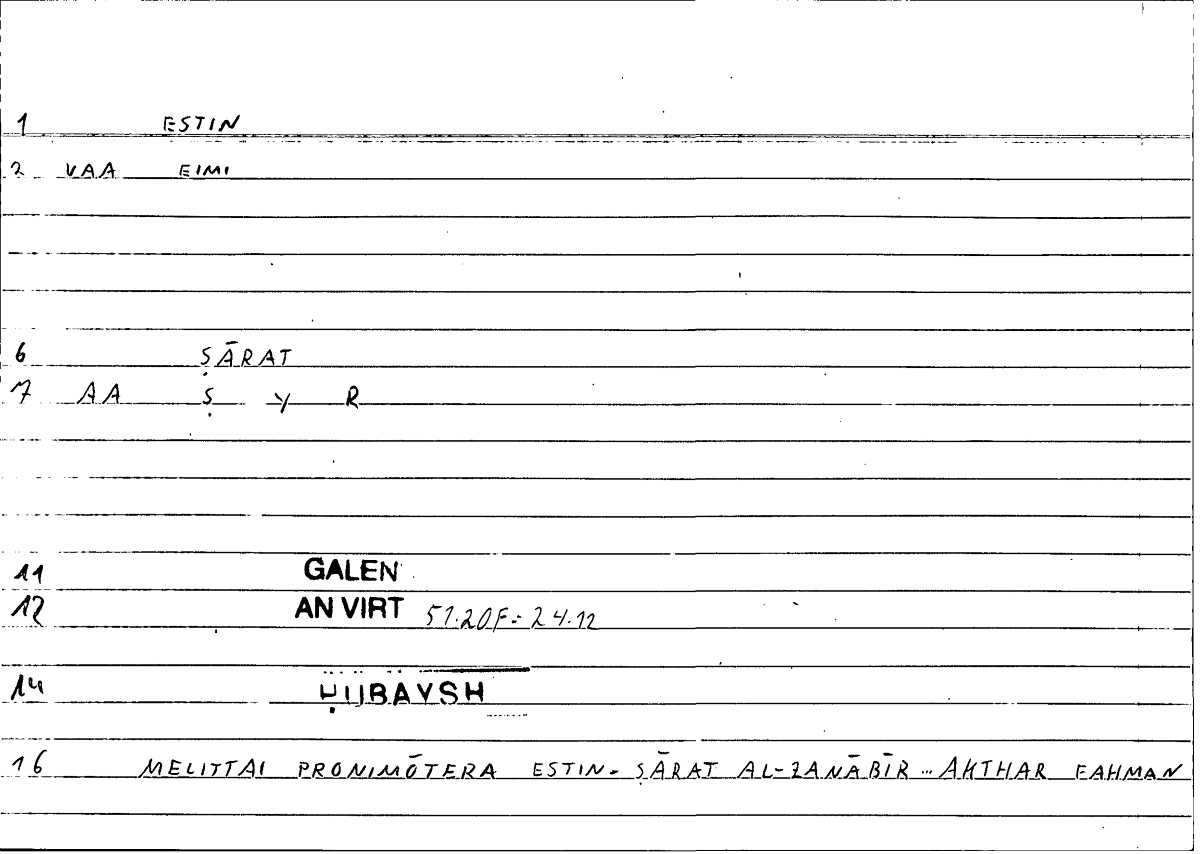 1 ESTIN
2 VAA EIMI
6 ṢĀRAT
7 AA Ṣ Y R
11 GALEN
12 AN VIRT 51.20F = 24.12
14 ḤUBAYSH
16 MELITTAI PRONIMŌTERA ESTIN = ṢĀRAT AL-ZANĀBĪR ... AKTHAR FAHMAN